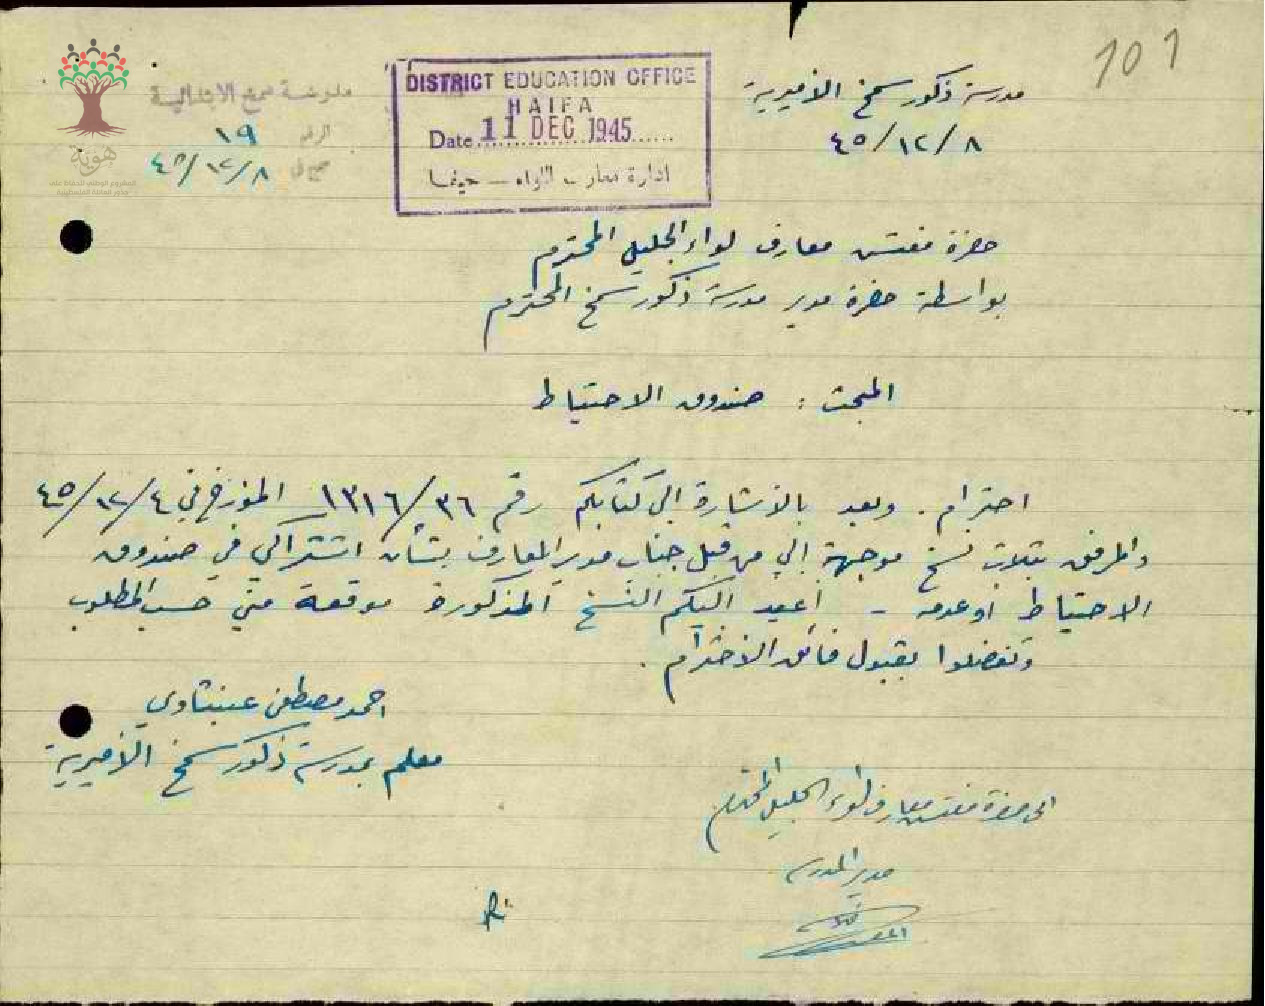 101
مدرسة ذكور سمخ الأميرية
٤٥/١٢/٨
DISTRICT EDUCATION OFFICE
HAIFA
Date 11 DEC 1945
ادارة معارف اللواء – حيفا
مدرسة سمخ الابتدائية
الرقم ١٩
٤٥/١٢/٨
هوية
حضرة مفتش معارف لواء الجليل المحترم
بواسطة حضرة مدير مدرسة ذكور سمخ المحترم
المبحث : صندوق الاحتياط
احترام . وبعد بالاشارة الى كتابكم رقم ١٣١٦/٣٦ المؤرخ في ٤٥/١٢/٤
والمرفق بثلاث نسخ موجهة إلي من قبل جناب مدير المعارف بشأن اشتراكي في صندوق
الاحتياط أو عدمه - أعيد اليكم النسخ المذكورة موقعة مني حسب المطلوب
وتفضلوا بقبول فائق الاحترام .
احمد مصطفى عينبتاوي
معلم بمدرسة ذكور سمخ الأميرية
الى حضرة مفتش معارف لواء الجليل المحترم
مدير المدرسة